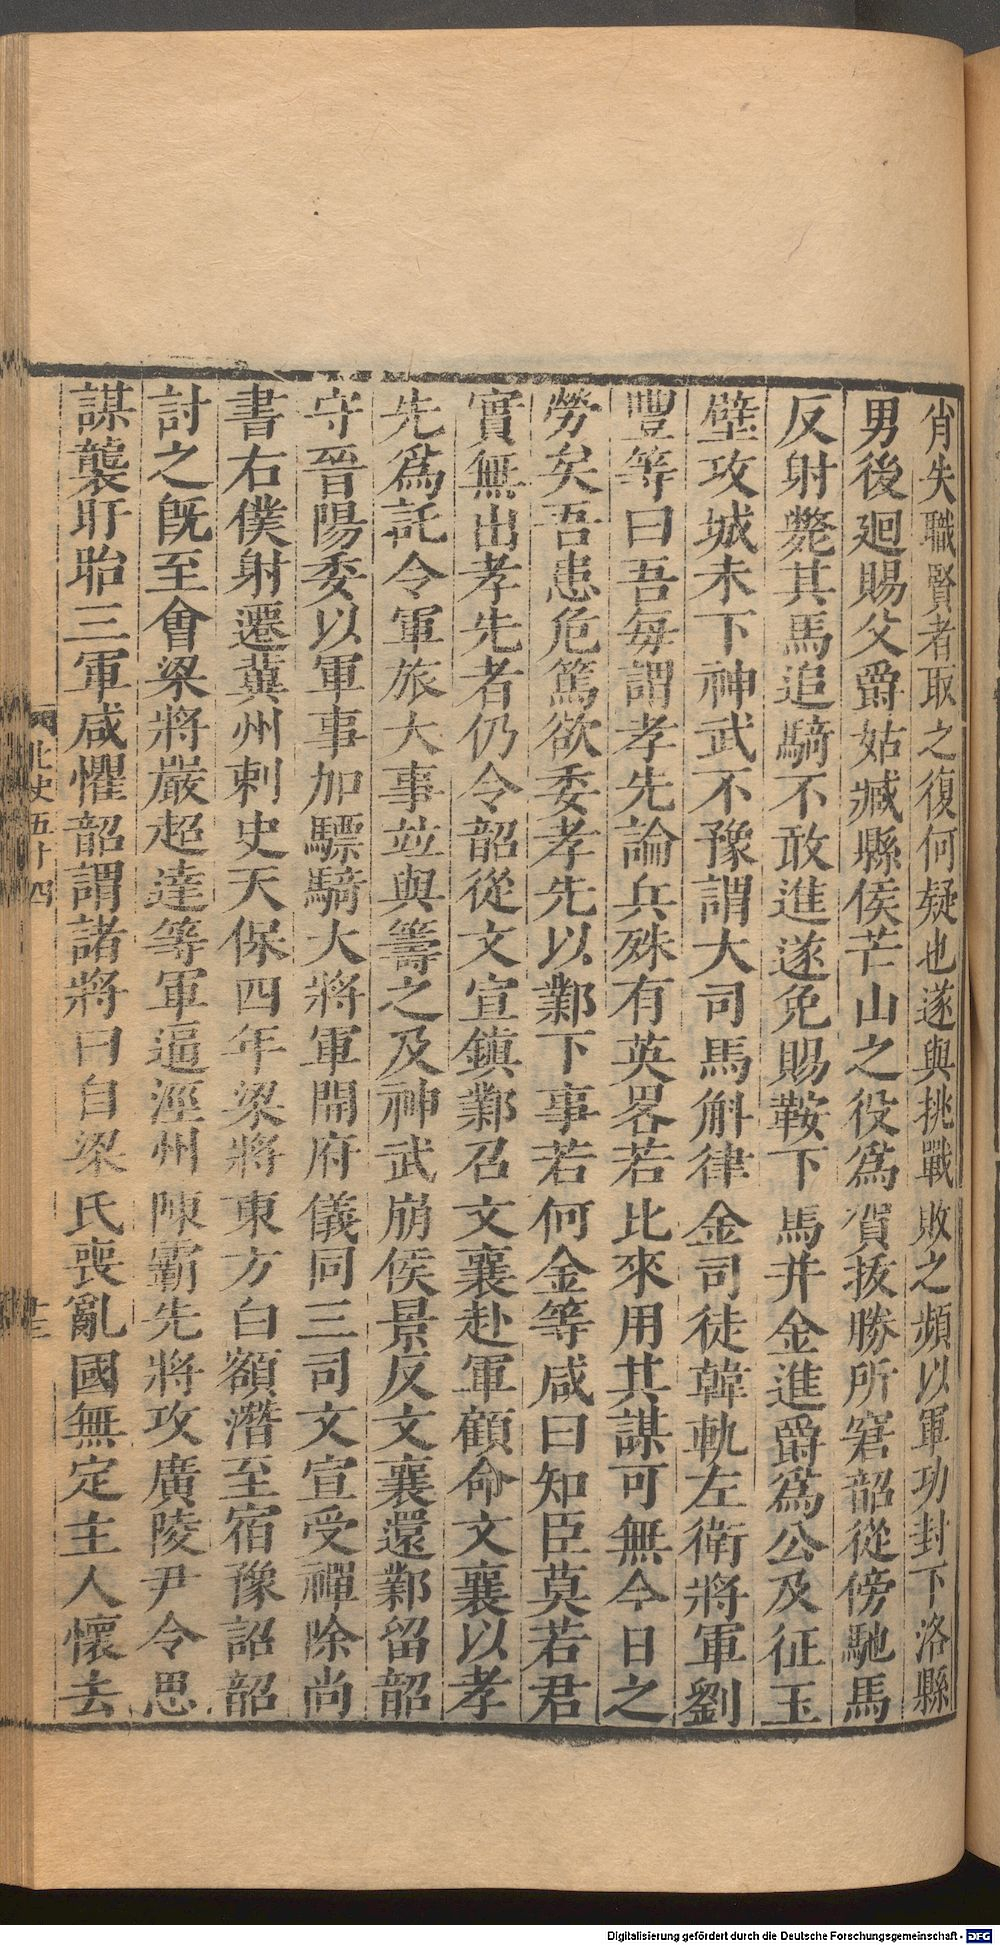 肖失職賢者取之復何疑也遂與挑戰敗之頻以軍功封下洛縣
男後廻賜父爵姑臧縣侯芒山之役爲賀拔勝所窘韶從傍馳馬
反射斃其馬追騎不敢進遂免賜鞍下馬并金進爵爲公及征玉
壁攻城未下神武不豫謂大司馬斛律金司徒韓軌左衛將軍劉
豐等曰吾每謂孝先論兵殊有英畧若比來用其謀可無今日之
勞矣吾患危篤欲委孝先以鄴下事若何金等咸曰知臣莫若君
實無出孝先者仍令韶從文宣鎮鄴召文襄赴軍顧命文襄以孝
先爲託令軍旅大事並與籌之及神武崩侯景反文襄還鄴留韶
守晉陽委以軍事加驃騎大將軍開府儀同三司文宣受禪除尚
書右僕射遷冀州刺史天保四年梁將東方白額潛至宿豫詔韶
討之既至會梁將嚴超達等軍逼涇州陳霸先將攻廣陵尹令思
謀襲盱眙三軍咸懼韶謂諸將曰自梁氏喪亂國無定主人懷去
北史五十四
十三
Digitalisierung gefördert durch die Deutsche Forschungsgemeinschaft - DFG